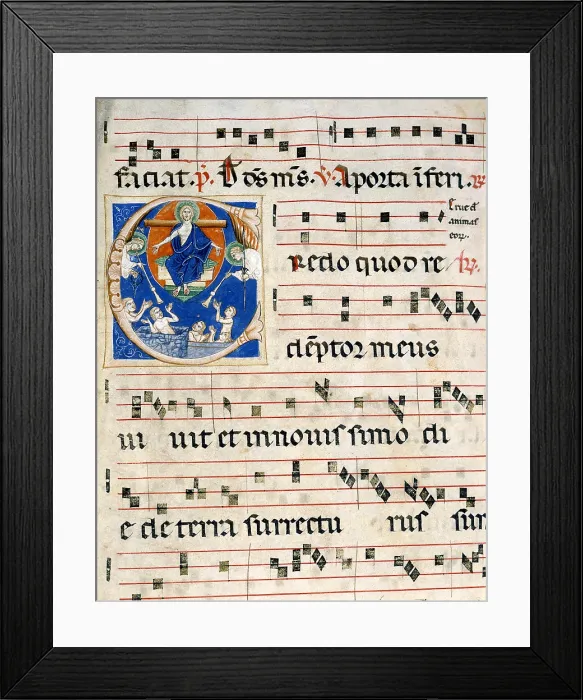 faciat. p̄. A ōs m̄s. v̄. A porta īferi. R
Erue dñe animas eoȝ.
redo quod re
dēptor meus
ui uit et in nouissimo di
e de terra surrectu rus sum